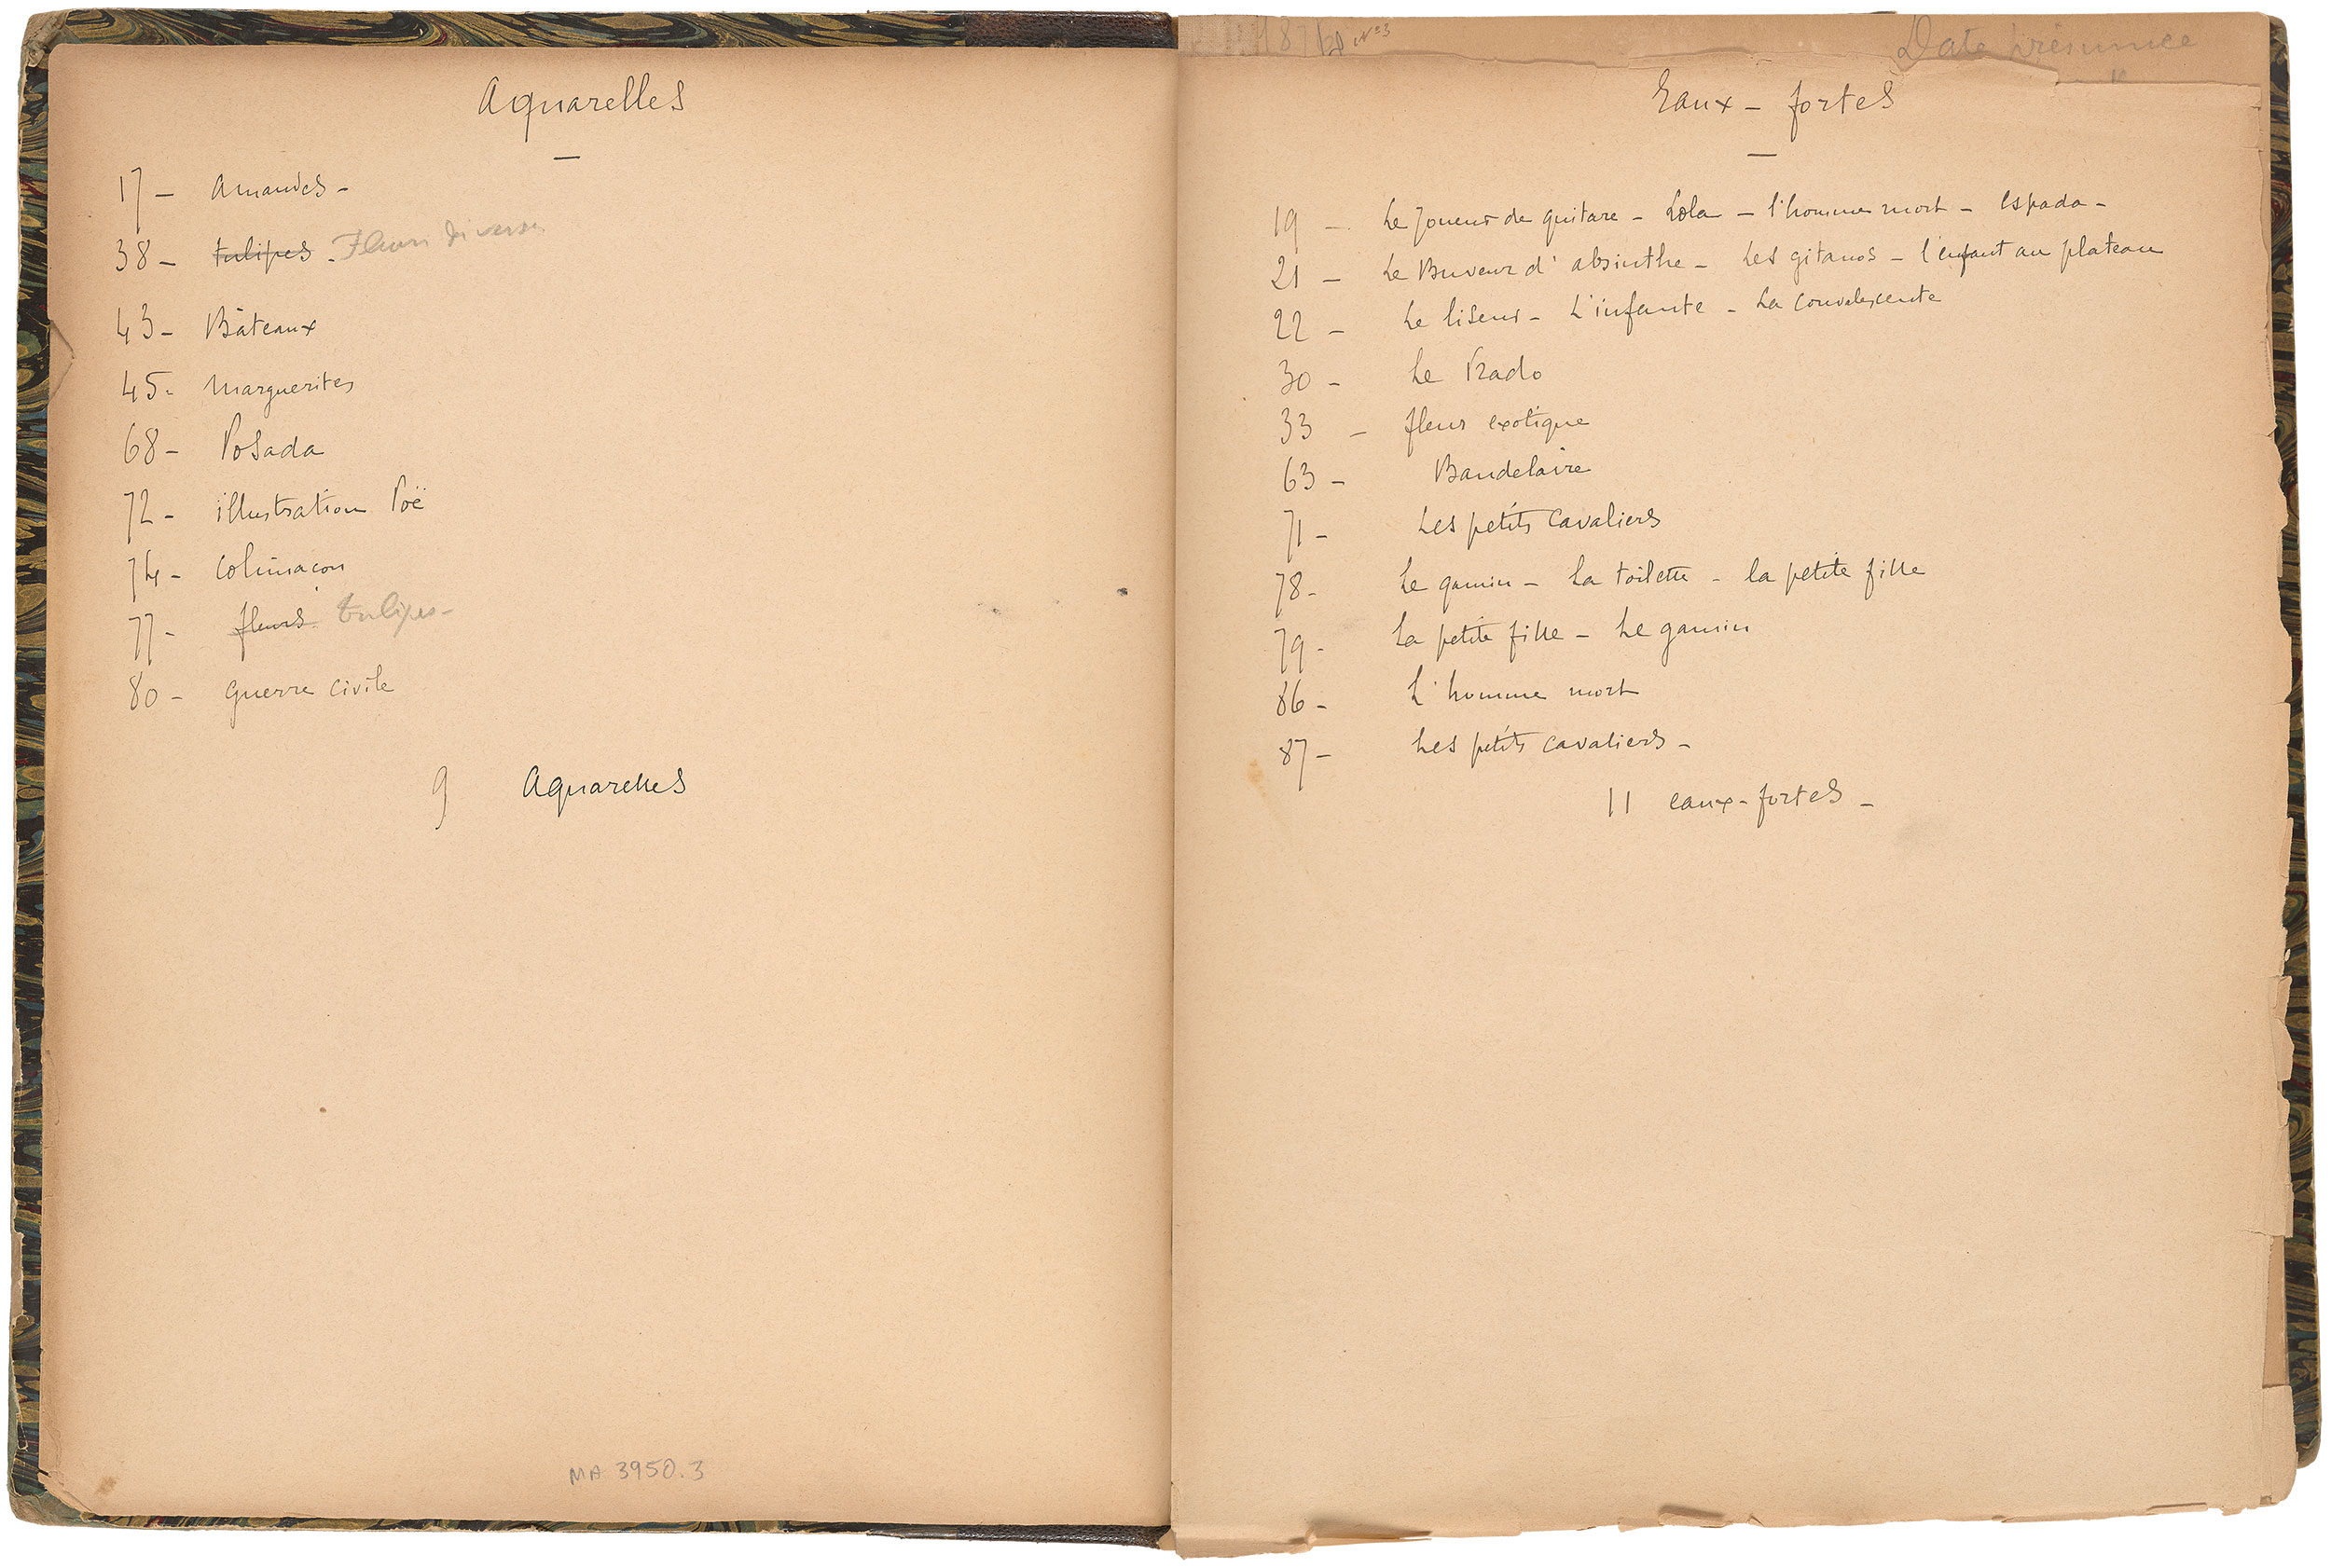 Aquarelles
17 - Amandes -
38 - tulipes - Fleurs diverses
43 - Bâteaux
45 - Marguerites
68 - Posada
72 - illustration Poë
74 - Colimaçon
77 - fleurs tulipes -
80 - guerre civile
9 Aquarelles
MA 3950.3
No 3
Date présumée
Eaux - fortes
19 - Le Joueur de guitare - Lola - l'homme mort - espada -
21 - Le Buveur d'absinthe - Les gitanos - l'enfant au plateau
22 - Le liseur - L'infante - La convalescente
30 - Le Prado
33 - fleur exotique
63 - Baudelaire
71 - Les petits cavaliers
78 - Le gamin - La toilette - la petite fille
79 - La petite fille - Le gamin
86 - L'homme mort
87 - Les petits cavaliers -
11 eaux-fortes -